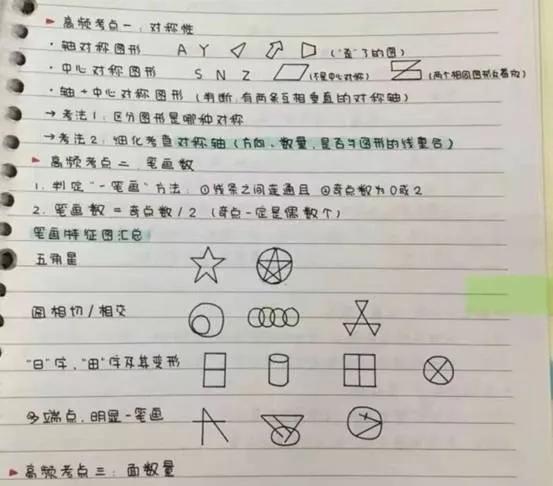 高频考点一：对称性
· 轴对称图形 A Y ("歪"了的图)
· 中心对称图形 S N Z (不是轴对称) (两个相同图形反着放)
· 轴+中心对称图形 (判断:有两条互相垂直的对称轴)
→考法1：区分图形是哪种对称
→考法2：细化考查对称轴(方向、数量、是否与图形的线重合)
高频考点二：笔画数
1. 判定"一笔画"方法：①线条之间连通且 ②奇点数为0或2
2. 笔画数 = 奇点数 / 2 (奇点一定是偶数个)
笔画特征图汇总
五角星
圆相切/相交
"日"字、"田"字及其变形
多端点、明显一笔画
高频考点三：面数量